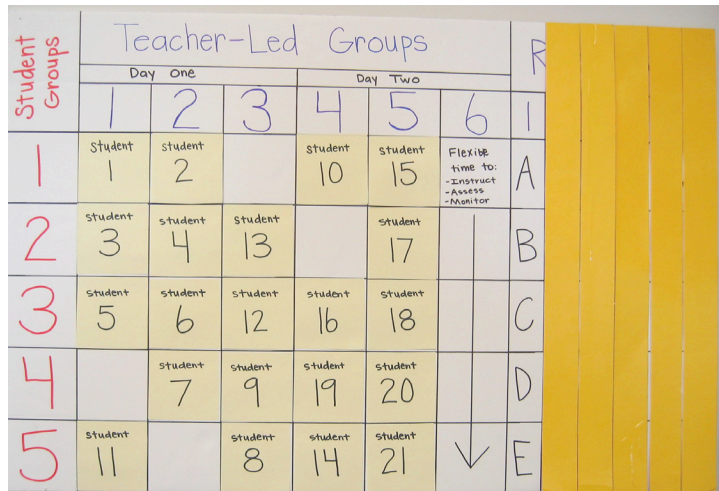 Student
Groups
Teacher-Led Groups
R
Day One
Day Two
1 2 3 4 5 6 1
1
Student
1
Student
2
Student
10
Student
15
Flexible
time to:
-Instruct
-Assess
-Monitor
A
2
Student
3
Student
4
Student
13
Student
17
B
3
Student
5
Student
6
Student
12
Student
16
Student
18
C
4
Student
7
Student
9
Student
19
Student
20
D
5
Student
11
Student
8
Student
14
Student
21
E